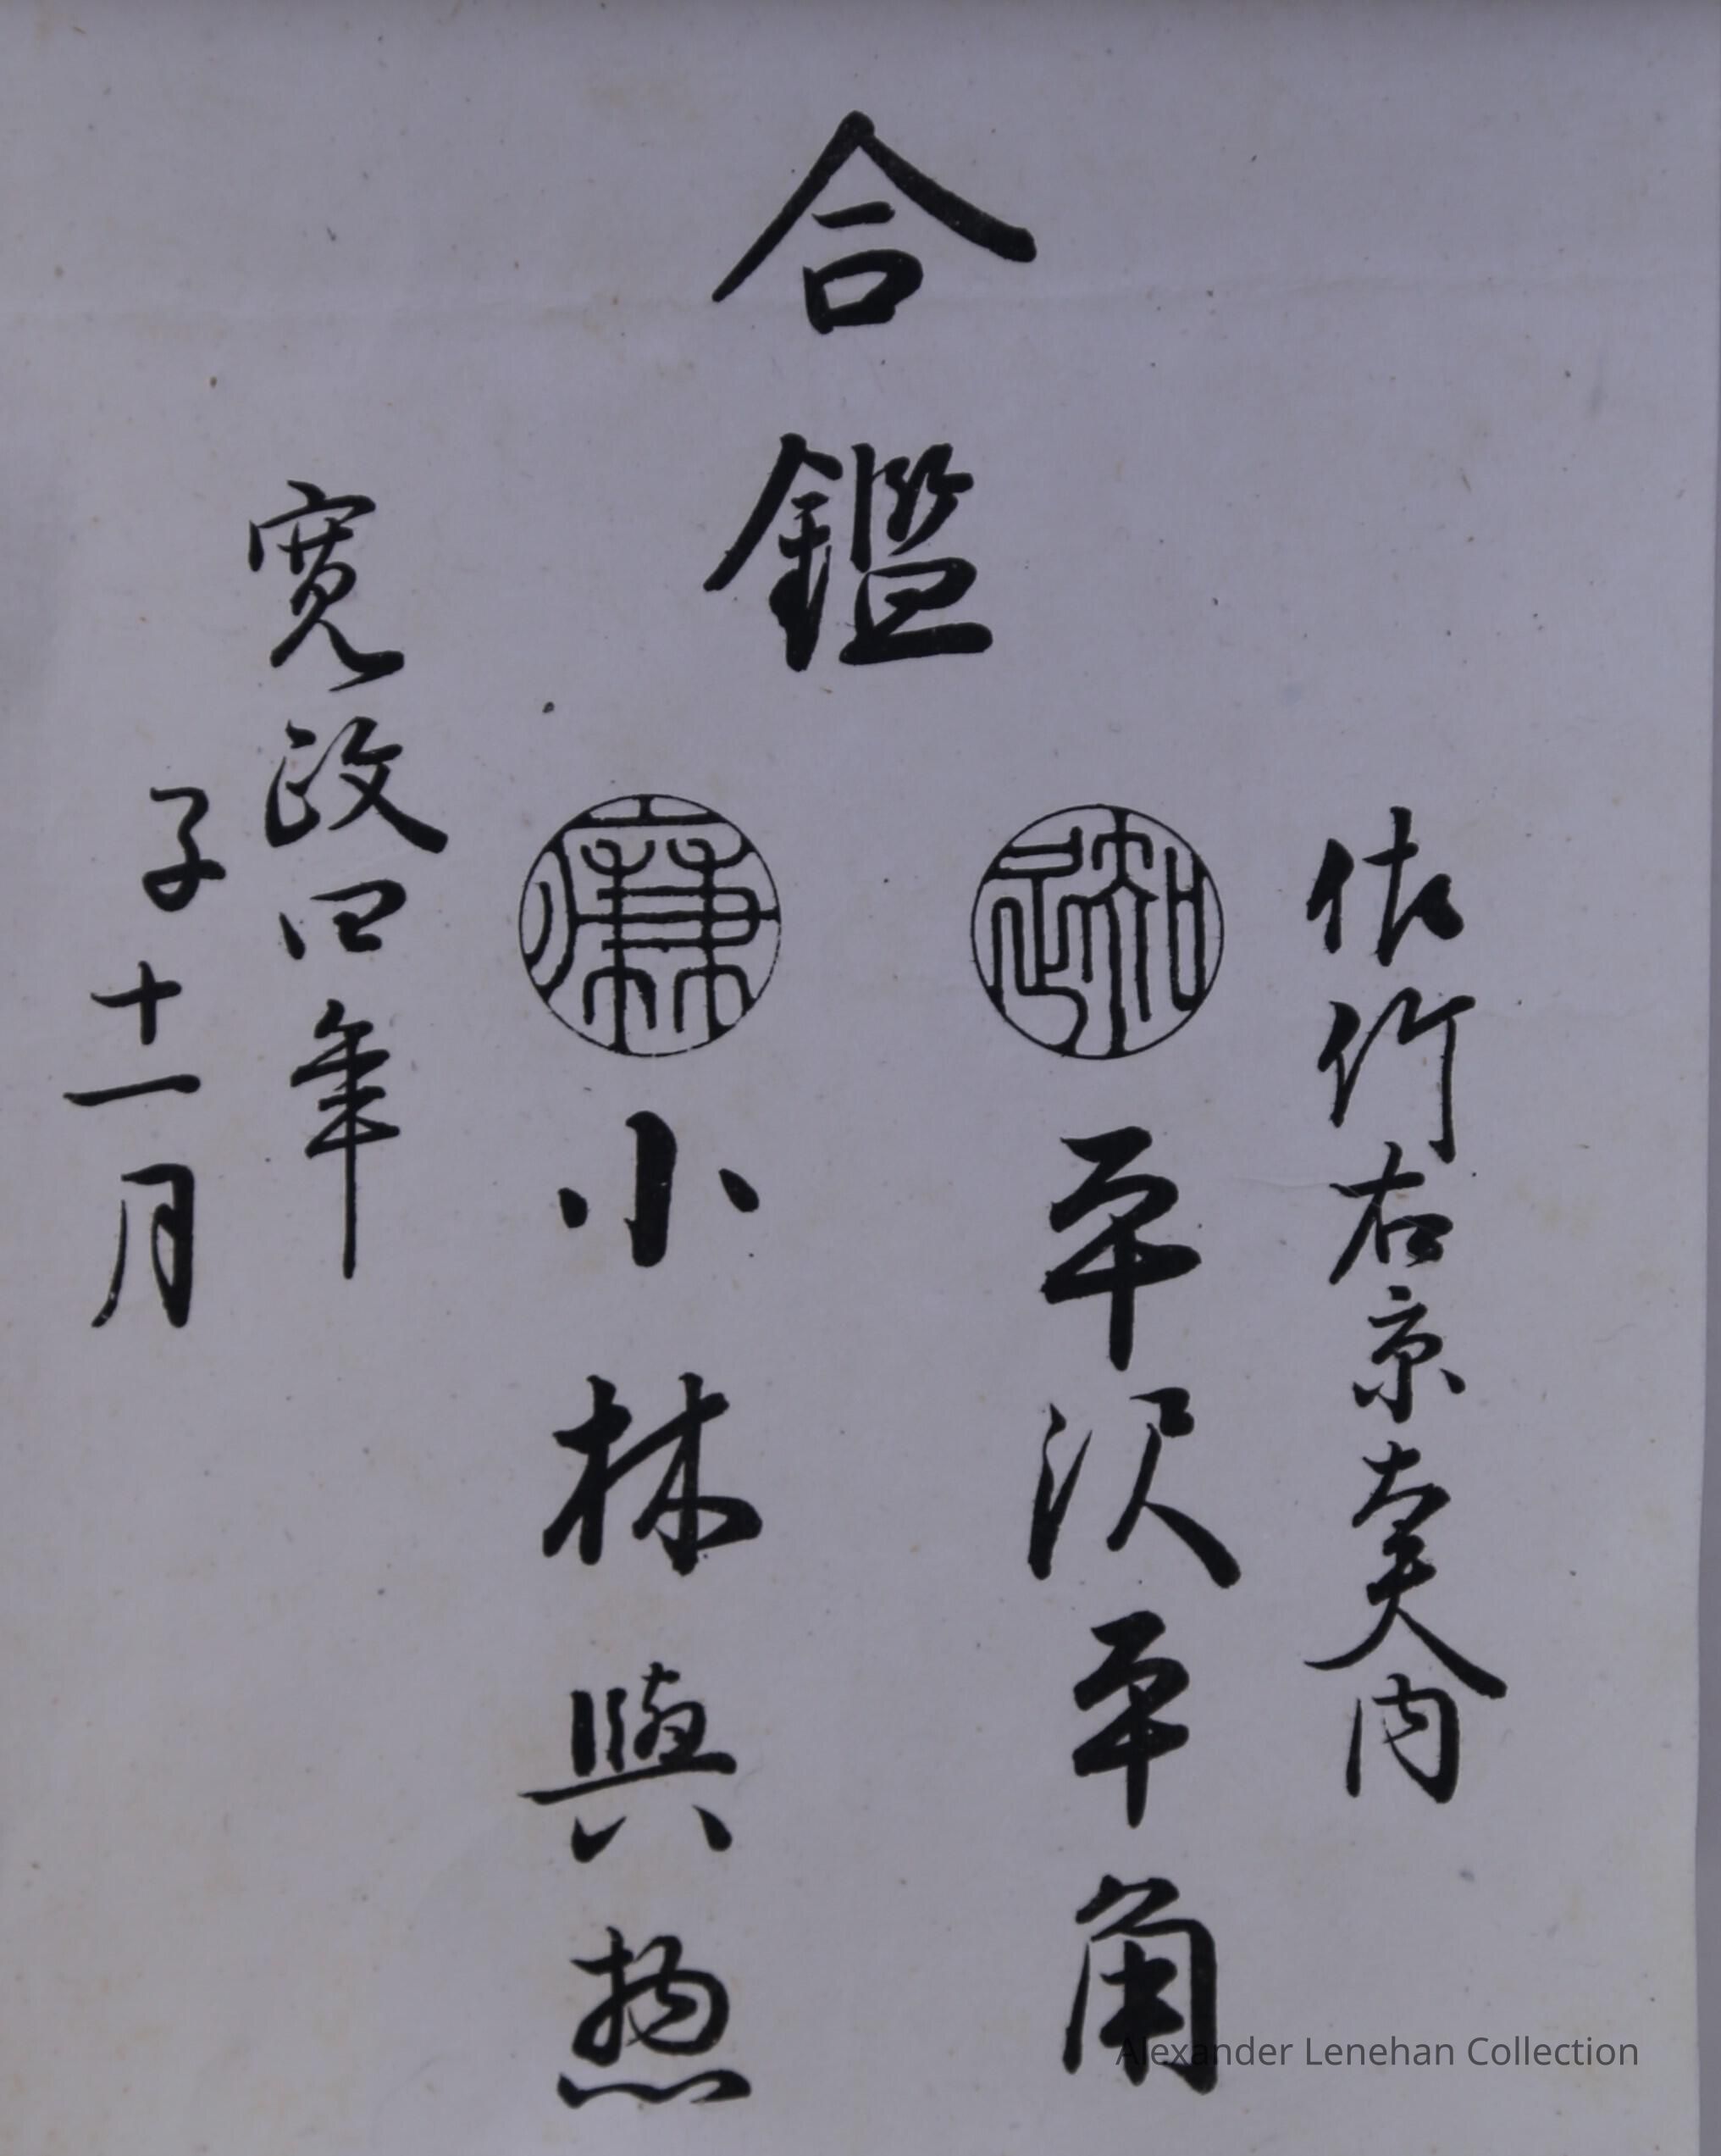 合鑑
佐竹右京大夫内
平沢平角
小林與惣
寛政四年
子十一月
Alexander Lenehan Collection